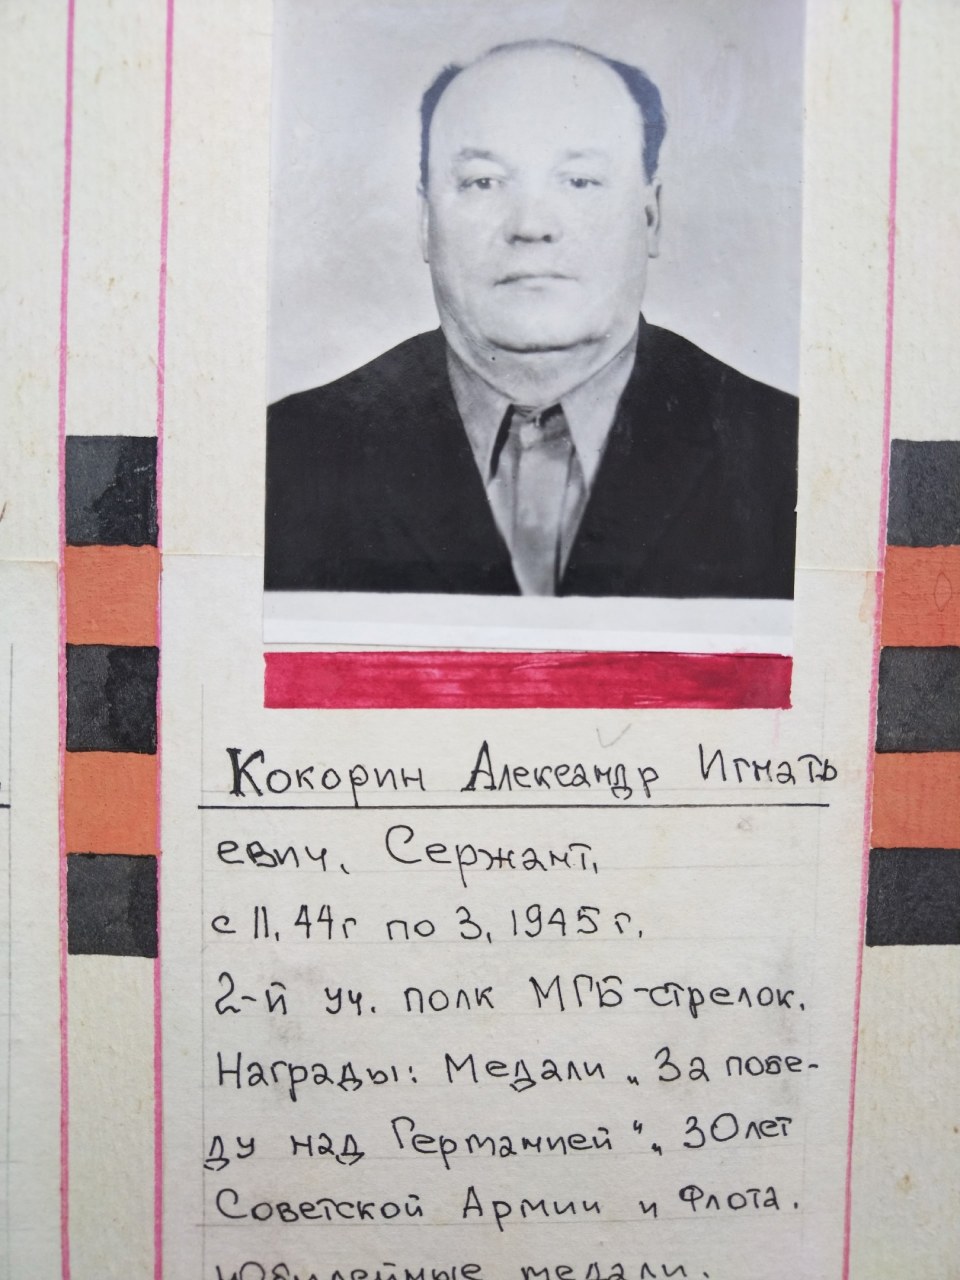 Кокорин Александр Игнать
евич. Сержант,
с 11, 44г по 3, 1945 г.
2-й уч. полк МГБ-стрелок.
Награды: Медали „За побе-
ду над Германией“, 30 лет
Советской Армии и Флота.
Юбилейные медали.